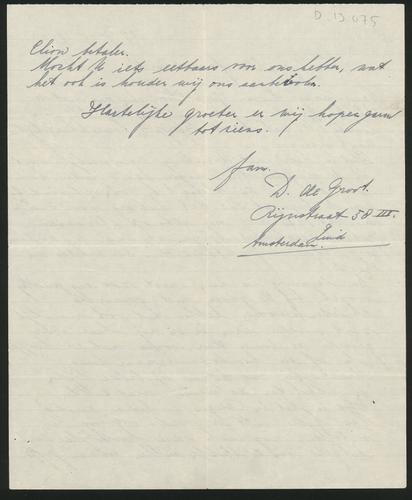 D. 13.075
Clion betalen.
Mocht U iets eetbaars voor ons hebben, wat
het ook is houden wij ons aanbevolen.
Hartelijke groeten en wij hopen gauw
tot ziens.
fam.
D. de Groot.
Rijnstraat 58 III.
Amsterdam Zuid